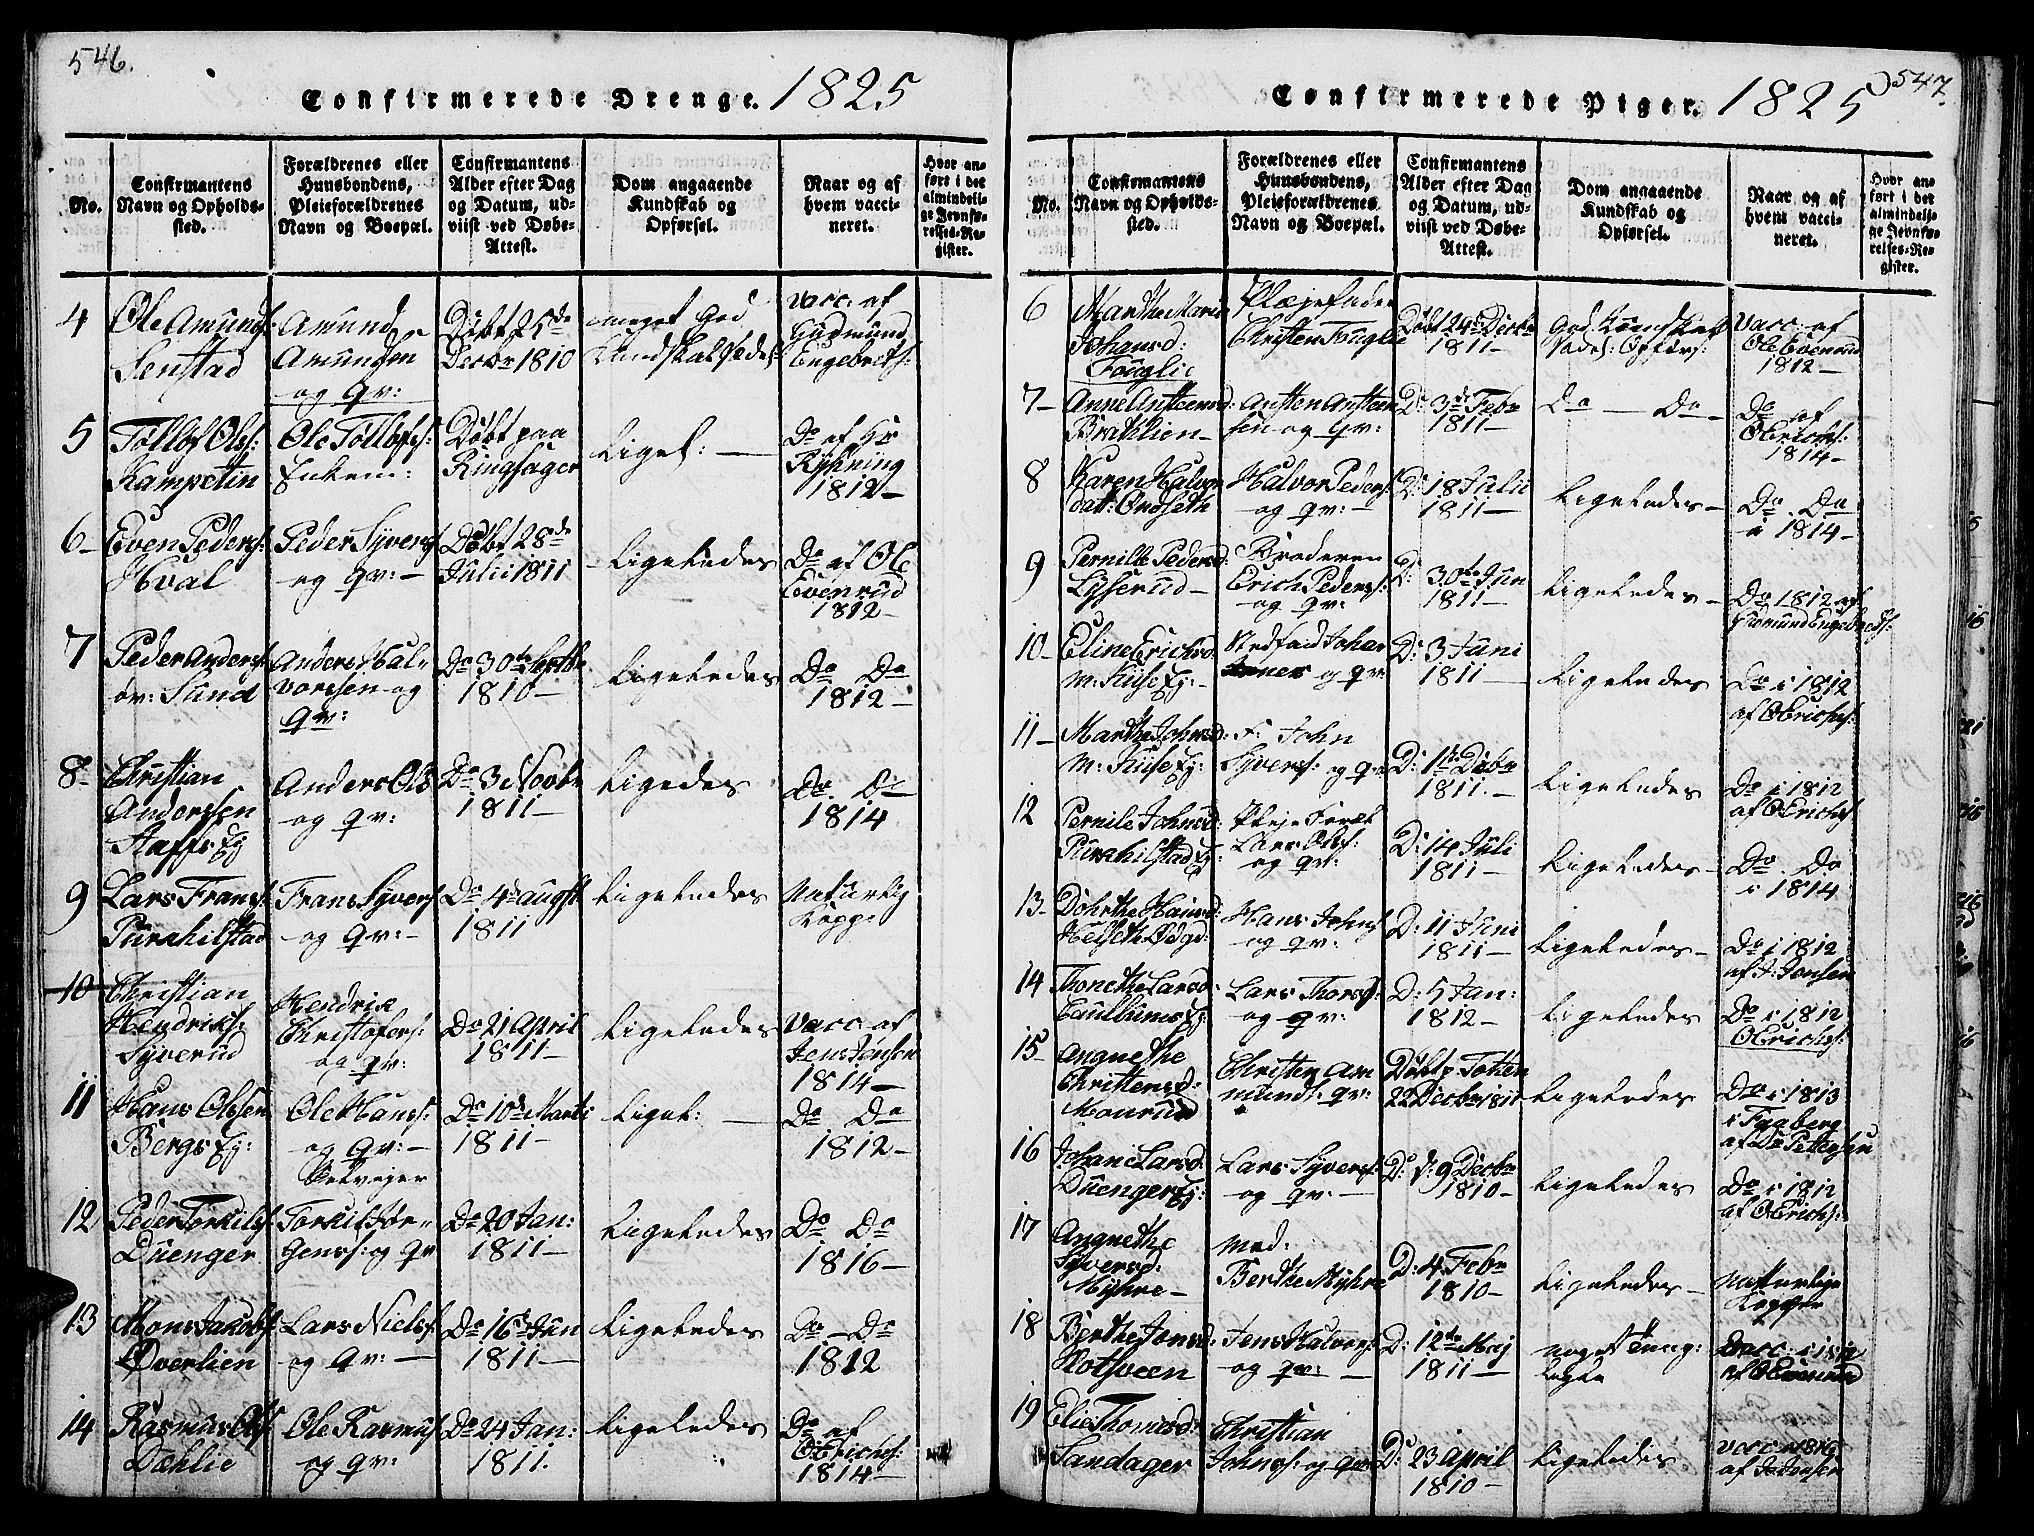 546.
Confirmerede Drenge. 1825
No.
Confirmantens
Navn og Opholds-
sted.
Forældrenes eller
Huusbondens,
Pleieforældrenes
Navn og Boepæl.
Confirmantens
Alder efter Dag
og Datum, ud-
viist ved Døbe-
Attest.
Dom angaaende
Kundskab og
Opførsel.
Naar og af
hvem vacci-
neret.
Hvor an-
ført i det
almindeli-
ge Jevnfø-
relses-Re-
gister.
4
Ole Amunds:
Senstad
Amund
Amundsen
og Qv:
Døbt 25de
Decbr 1810
meget god
Kundskab
Vacc: af
Gudmund
Engebrets:
5
Tollof Ols:
Kampetin
Ole Tollofs:
Enken:
Døbt paa
Ringsager
Liges: —
Do af Hr
Rykning
1812 —
6 —
Even Peders:
Hval
Peder Syvers:
og Qv: —
Døbt 28de
Julii 1811
Ligeledes
Do af Ole
Evenrud
1812 —
7
Peder Anders:
øv: Sund
Anders Hal-
vorssen og
Qv:
Do 30te Septbr
1810 —
Ligeledes
Do Do
1812 —
8 —
Christian
Anderssen
Staffs Ej
Anders Ols:
og Qv:
Do 3 Novbr
1811 —
Ligedes
Do Do
1814
9
Lars Frans:
Purkhilstad
Frans Syvers:
og Qv: —
Do 4de Augst
1811
Ligeledes
Naturlig
Kopp:
10
Christian
Hendriks:
Syverud
Hendrik
Christofers:
og Qv:
Do 21 April
1811 —
Ligeledes
Vacc: af
Jens Jonsen
1814 —
11
Hans Olssen
Bergs Ej:
Ole Hans:
og Qv: —
Do 10de Marti
1811 —
Liges: —
Do Do
1812 —
12
Peder Torkils:
Duenger
Torkil Jør-
gens: og Qv
Do 20 Jan:
1811 —
Ligeledes
Do Do
1816 —
13
Mons Jakobs:
Øverlien
Lars Niels:
og Qv: —
Do 16de Jun
1811 —
Ligeledes
Do — Do
1812
14
Rasmus Ols:
Dæhlie
Ole Rasmus:
og Qv:
Do 24 Jan:
1811.
Ligeledes
Do af
O Erichs:
1814 —
547.
Confirmerede Piger. 1825
No.
Confirmantens
Navn og Opholds-
sted.
Forældrenes eller
Huusbondens,
Pleieforældrenes
Navn og Boepæl.
Confirmantens
Alder efter Dag
og Datum, ud-
viist ved Døbe-
Attest.
Dom angaaende
Kundskab og
Opførsel.
Naar og af
hvem vacci-
neret.
Hvor an-
ført i det
almindeli-
ge Jevnfø-
relses-Re-
gister.
6
Marthe Marie
Johansd:
Fouglie
Plejefader
Christen Fouglie
Døbt 24de Decbr
1811 —
God Kundskab
Vacc: af
Ole Evenrud
1812 —
7 —
Anne Austeensd:
Brathlien —
Austen Austeen
sen og Qv:
D: 3de Febr
1811 —
Do — Do —
Do af
O Erichs:
1814 —
8
Karen Halvor
dat: Ondseth
Halvor Peders:
og Qv: —
D: 18 Julii
1811 —
Ligeledes —
Do Do
i 1814 —
9
Pernille Pedersd:
Lysserud —
Broderen
Erich Peders:
og Qv:
D: 30te Jun
1811 —
Ligeledes —
Do 1812 af
Gudmund Engebreds:
10 —
Eline Erichsd:
M: Kise Ej: —
Stedfad Johan
og Qv:
D: 3 Juni
1811 —
Ligeledes
Do i 1812
af O Erichs:
11 —
Marthe Johnsd:
M: Kise Ej:
F: John
Syvers: og Qv:
D: 1te Decbr
1811. —
Ligeledes
Do i 1812
af O Erichs:
12
Pernile Johnsd:
Purkhilstad Ej:
Pleje Foræl
Lars Ols:
og Qv:
D: 14 Juli
1811 —
Ligeledes —
Do Do
i 1814
13 —
Dorthe Hansd:
Helseth Ødgd:
Hans Johns:
og Qv:
D: 11 Juni
1811 —
Ligeledes —
Do i 1812
af J: Jonsen
14
Thonethe Larsd:
Lars Thors:
og Qv:
D: 5 Jan:
1812 —
Ligeledes
Do i 1812
O Erichs:
15
Angnethe
Christensd:
Maurud
Christen Am
munds: Qv:
Døbt p. Totten
22 Decbr 1811
Ligeledes
Do i 1813
i Faaberg
af Dr Pettersen
16
Johane Larsd:
Duenger Ej:
Lars Syvers:
og Qv: —
D: d: 9 Decbr
1810 —
Ligeledes
Do i 1812
af O Erichs:
17
Angnethe
Syversd:
Myhre —
Mod:
Berthe Myhre
D: 4 Febr
1810 —
Ligeledes —
Naturlige
Kopper
18
Berthe Jensd:
Kotsveen
Jens Halvors:
og Qv: —
D: 12te Maj
1811 —
noget tung:
Vacc: i 1812
19
Elie Thomasd:
Sandager
Christian
Johns: og Qv:
D: 23 April
1810 —
Ligeledes
Vacc 1816
af J Jonsen